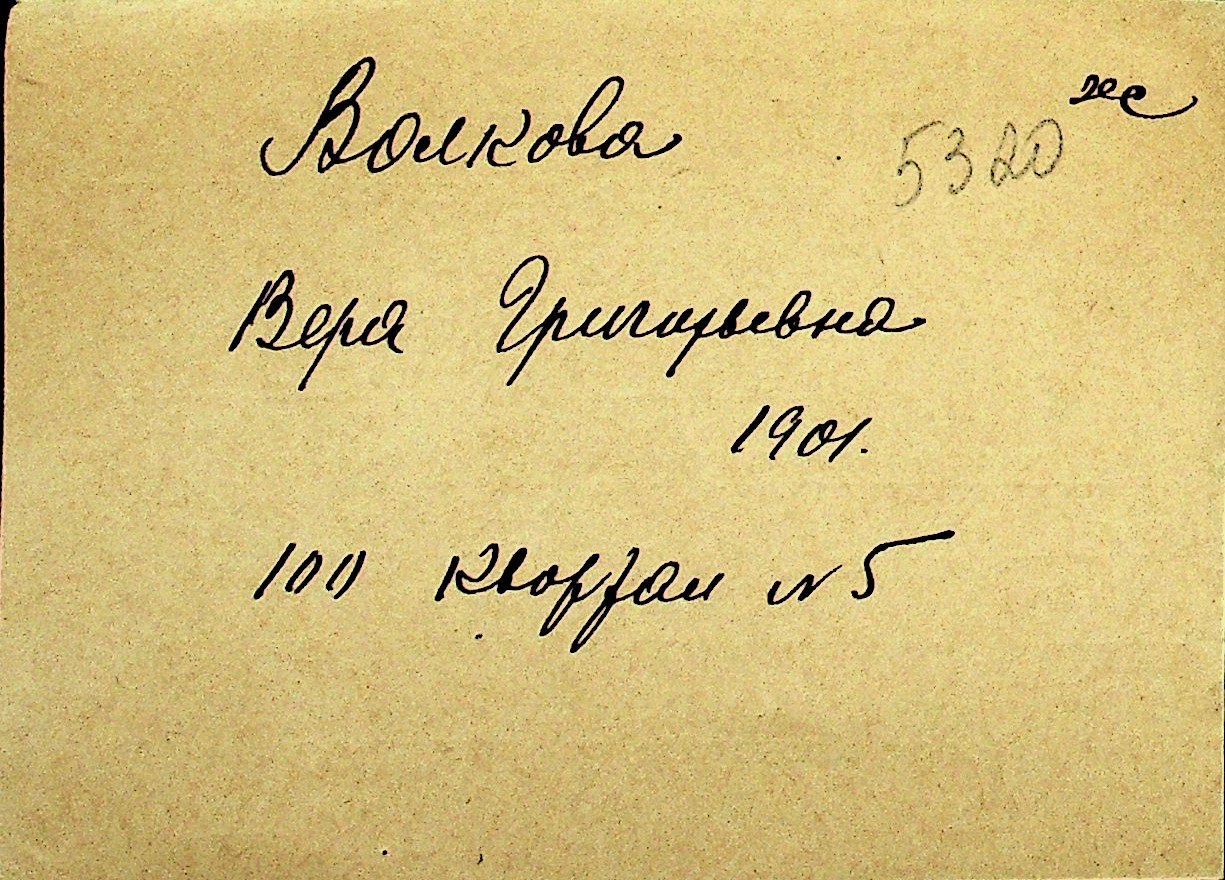 Волкова
5320
Вера Григорьевна
1901.
100 Квартал N 5